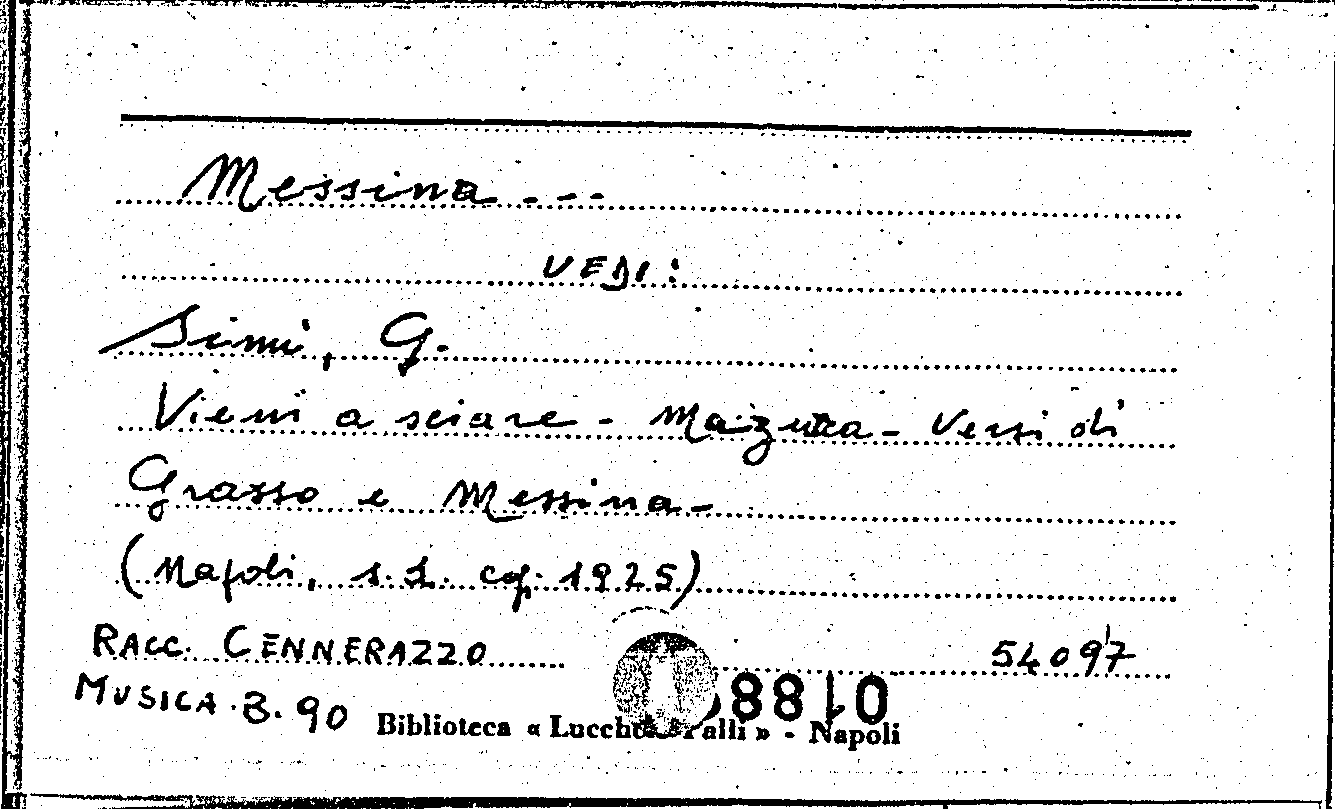 Messina ---
VEDI:
Simi, G.
Vieni a sciare - Mazurca - Versi di
Grasso e Messina -
(Napoli, s.d. cop. 1925)
RACC. CENNERAZZO 54097
MUSICA. B. 90 8810
Biblioteca « Lucchesi Palli » - Napoli